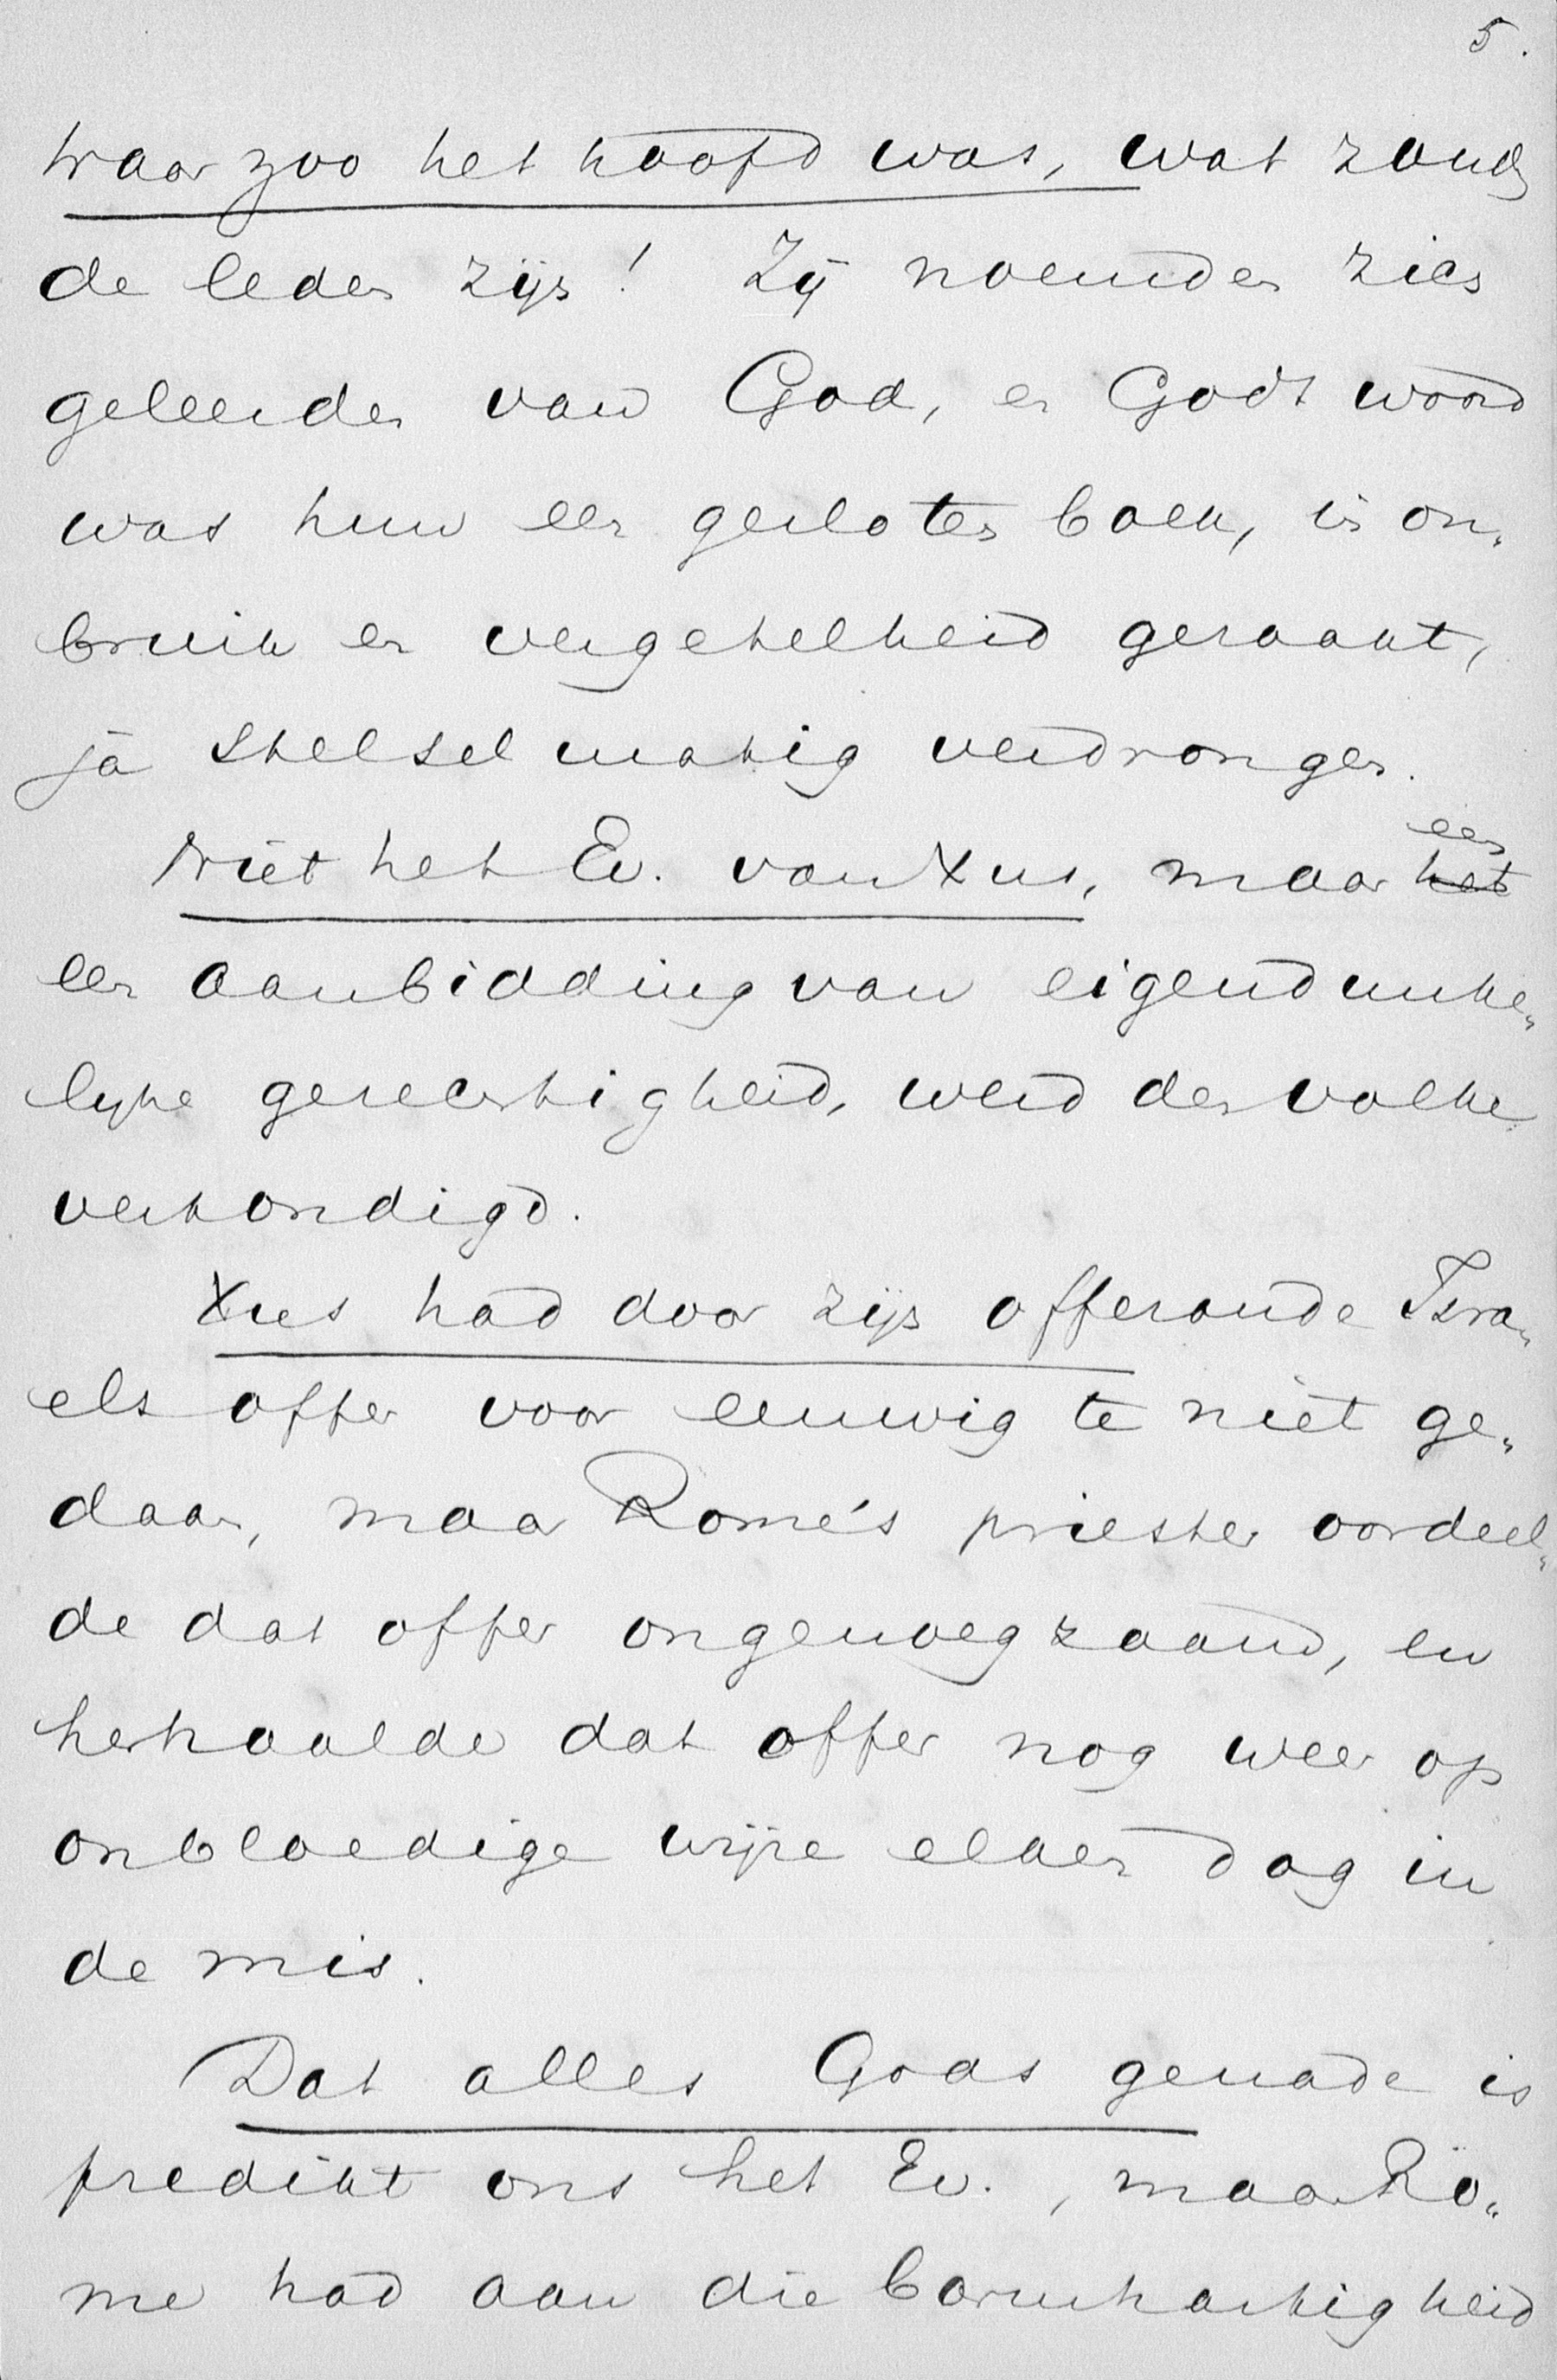 5.
Waar zoo het hoofd was, wat zoud
de leden zijn! Zij noemden zich
geleerden van God, en Gods woord
was hun een gesloten boek, in on„
bruik en vergetelheid geraakt,
ja stelselmatig verdrongen.
Niet het Ev. van Xus, maar het een
een aanbidding van eigendunke„
lijke gerechtigheid, werd den volke
verkondigd.
Xus had door zijn offerande Isra„
els offer voor eeuwig te niet ge„
daan, maar Rome's priester oordeel„
de dat offer ongenoegzaam, en
herhaalde dat offer nog weer op
onbloedige wijze elken dag in
de mis.
Dat alles Gods genade is
predikt ons het Ev., maar Ro„
me had aan die barmhartigheid